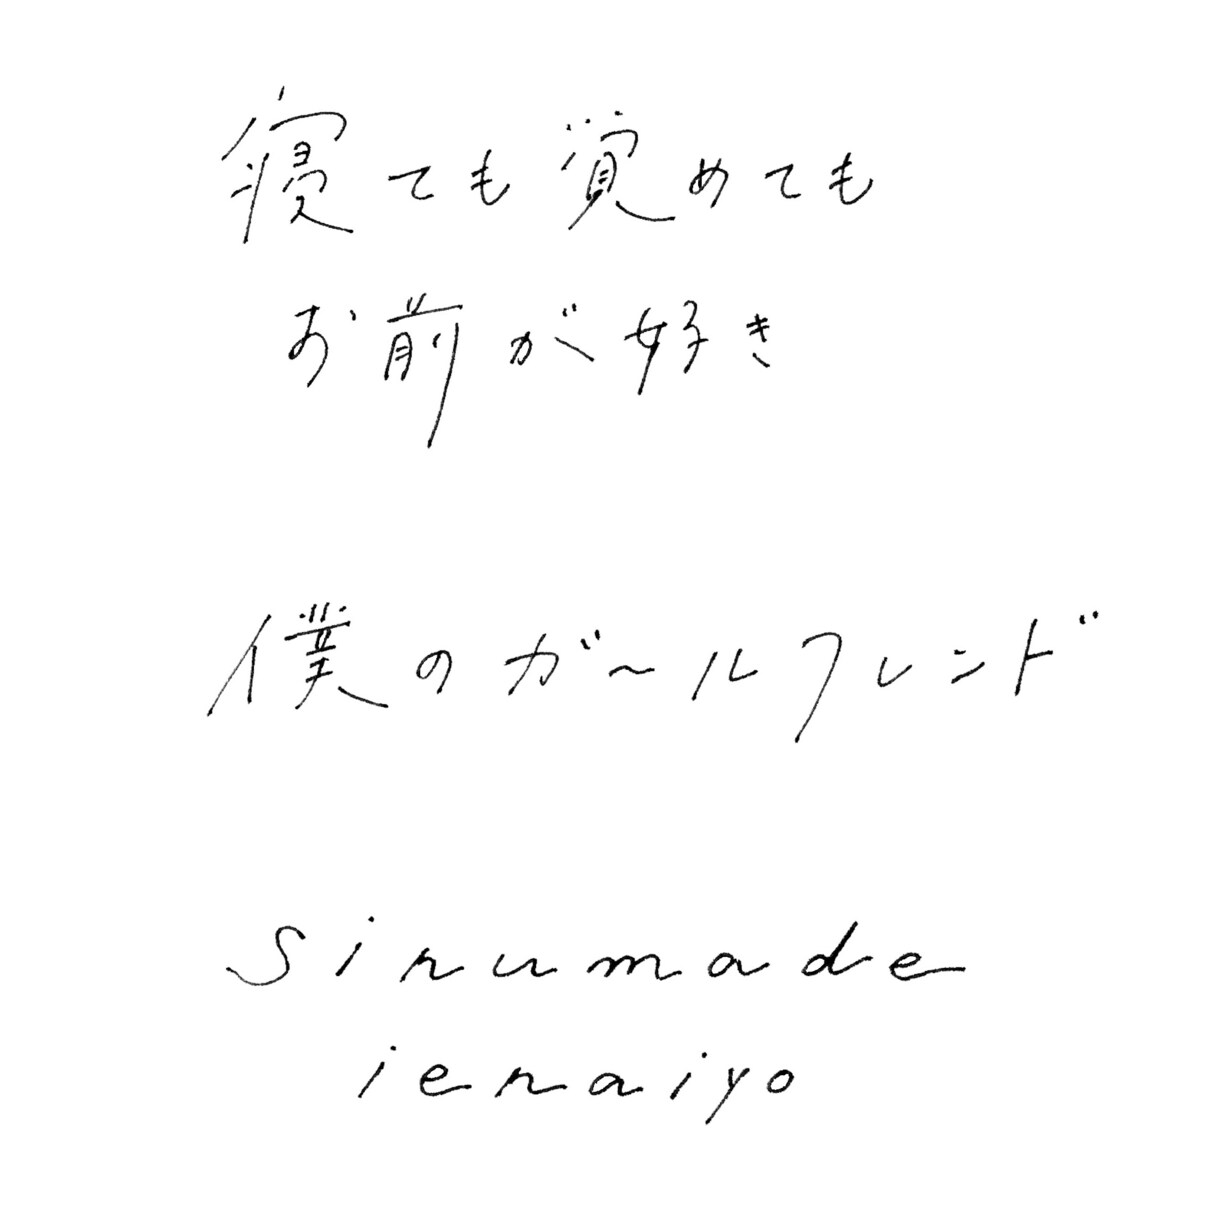 寝ても覚めても
お前が好き
僕のガールフレンド
sinumade
ienaiyo